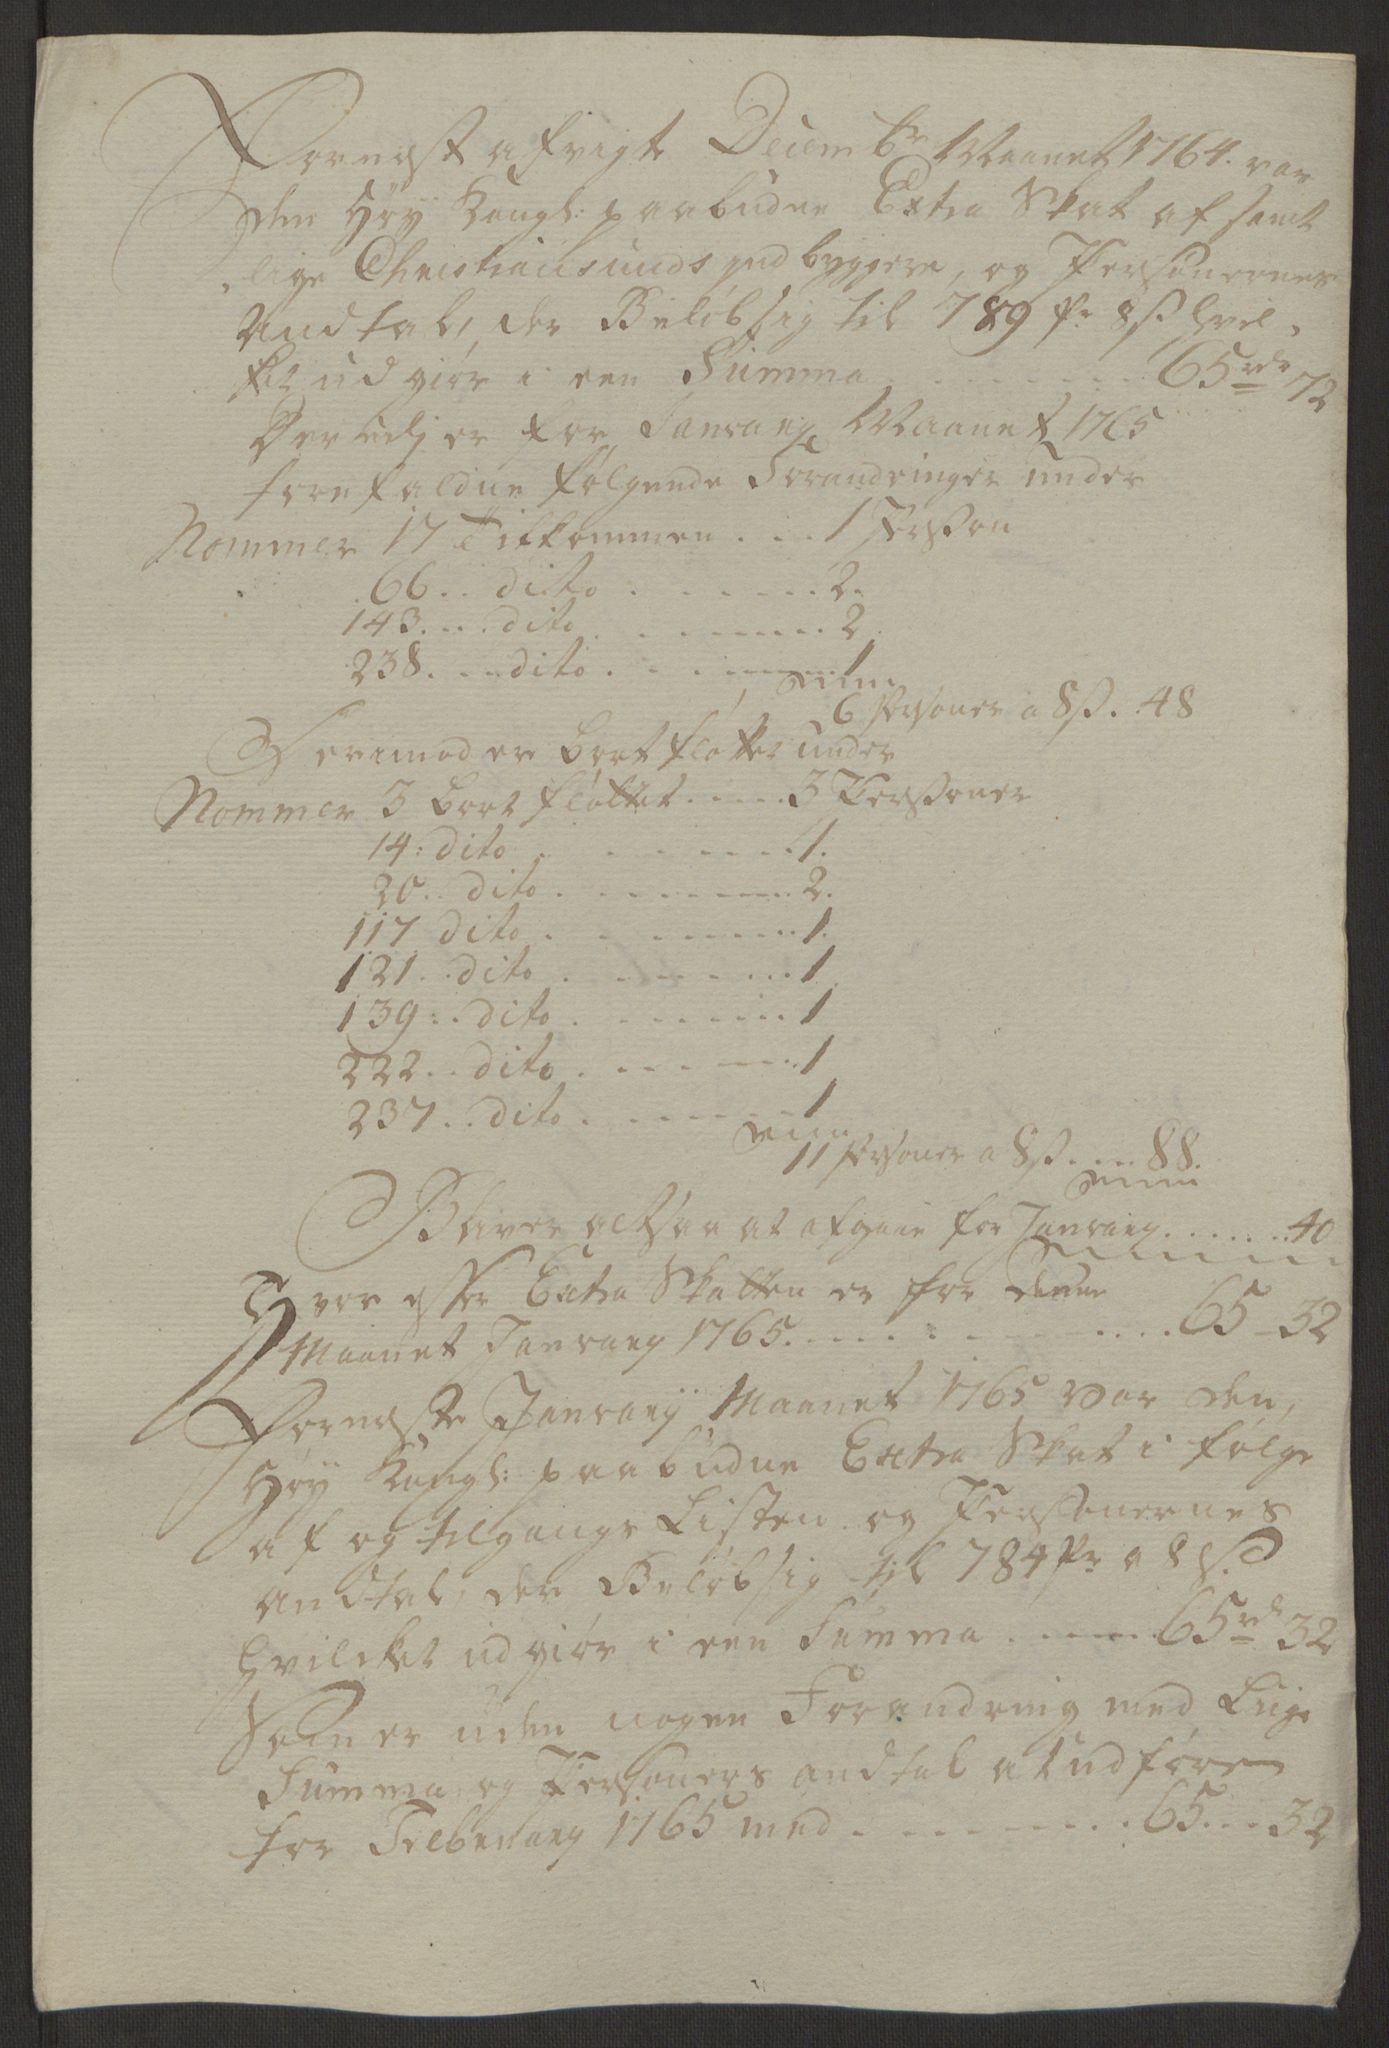 Fornest afvigte Decembr Maanet 1764. var
den Høy Kongl: paabudne Extra Skat af samt
lige Christiansunds indbyggere, og Personernes
Andtal, der Beløbsig til 789 Pr 8ß hvil
ket udgiør i een Summa . . . . . . 65 rdr 72
Derudj er for Januarj Maanet 1765
forefaldne følgende Forandringer under
Nommer 17 Tilkommen . . . 1 Persson
66 . . dito . . . . . . 2.
143 . . . dito . . . . . . 2
238. . . . dito . . . . . . 1
6 Personer a 8ß. . 48
Derimod er bort fløttet under
Nommer 3 bort fløttet . . . . . 3 Perssoner
14: dito . . . . . . 1.
20. . dito . . . . . . 2.
117 dito . . . . . . 1.
121. . dito . . . . . . 1
139. . dito . . . . . . 1
222. . dito . . . . . . 1
237. . dito . . . . . . 1
11 Personer a 8ß. . . . 88.
Bliver altsaa at afgaae for Januarj . . . . . . 40
Hvor efter Extra Skatten er for denne
Maanet Januarj 1765. . . . . . . . . 65 - 32
Forneste Januarij Maanet 1765 var den,
Høy Kongl: paabudne Extra Skat i følge
af og tilgangs Listen og Personernes
andtal, der Beløbsig til 784 Pr a 8 ß
hvilcket udgiør i een Summa . . . . . 65 rd 32
Som er uden nogen Forandring med Liige
Summa, og Personers andtal at udføre
for Feberuarj 1765 med . . . . . . . . 65 . . . 32